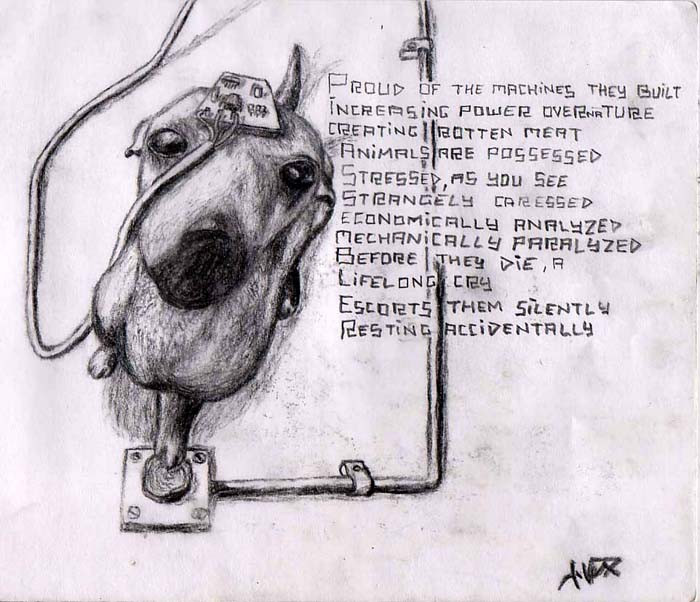 PROUD OF THE MACHINES THEY BUILT
INCREASING POWER OVER NATURE
CREATING ROTTEN MEAT
ANIMALS ARE POSSESSED
STRESSED, AS YOU SEE
STRANGELY CARESSED
ECONOMICALLY ANALYZED
MECHANICALLY PARALYZED
BEFORE THEY DIE, A
LIFELONG CRY
ESCORTS THEM SILENTLY
RESTING ACCIDENTALLY